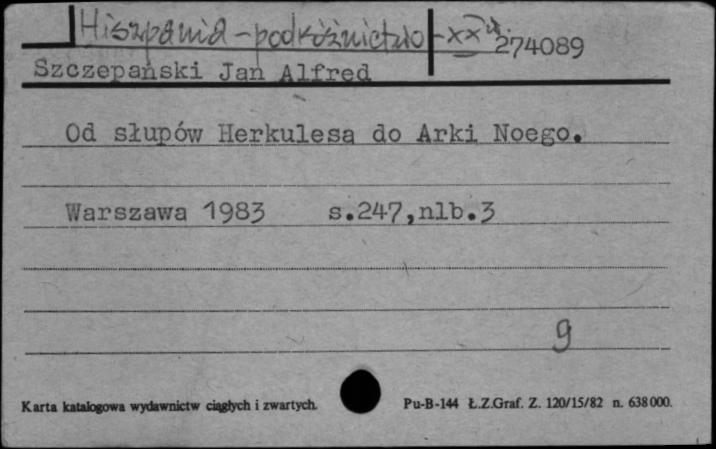 Hiszpania - podróżnictwo - XX w. 274089
Szczepański Jan Alfred
Od słupów Herkulesa do Arki Noego.
Warszawa 1983 s.247,nlb.3
g
Karta katalogowa wydawnictw ciągłych i zwartych.
Pu-B-144 Ł.Z.Graf. Z. 120/15/82 n. 638 000.